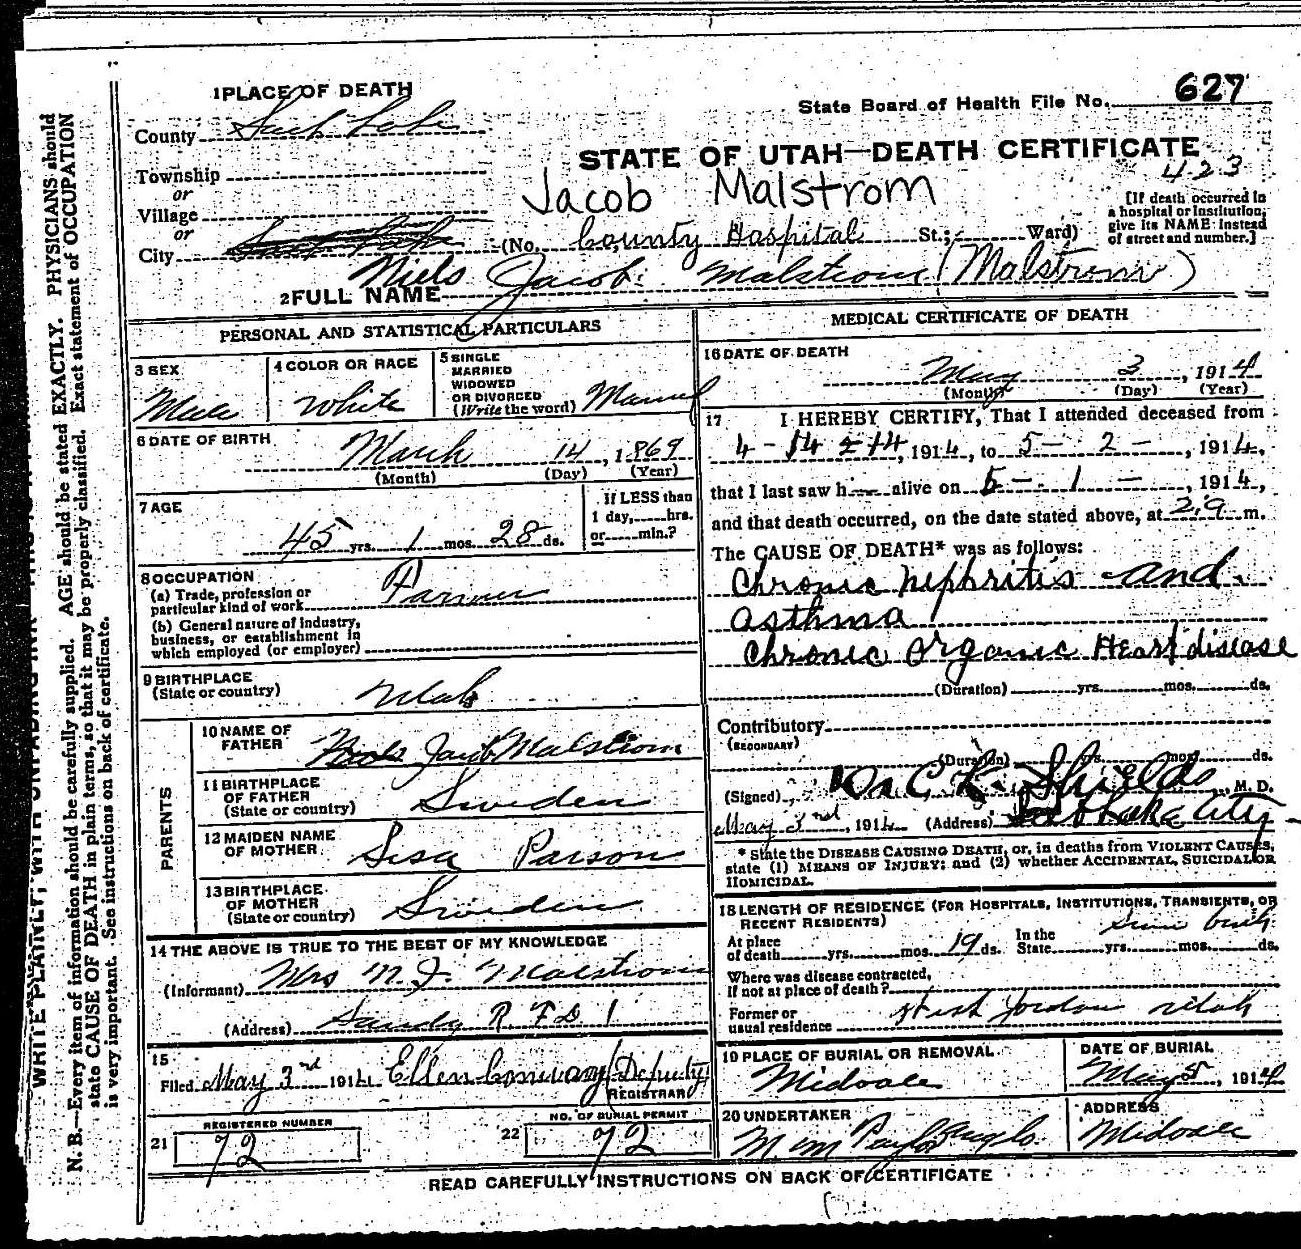 627
1 PLACE OF DEATH
State Board of Health File No.
County Salt Lake
STATE OF UTAH—DEATH CERTIFICATE
423
Township
or
Village
or
City
Jacob Malstrom
[If death occurred in
a hospital or institution,
give its NAME instead
of street and number.]
(No. County Hospital St.; Ward)
2 FULL NAME Niels Jacob Malstrom (Malstrom)
PERSONAL AND STATISTICAL PARTICULARS
3 SEX
Male
4 COLOR OR RACE
White
5 SINGLE
MARRIED
WIDOWED
OR DIVORCED
(Write the word) Married
6 DATE OF BIRTH
March 14, 1869
(Month) (Day) (Year)
7 AGE
45 yrs. 1 mos. 28 ds.
If LESS than
1 day, hrs.
or min.?
8 OCCUPATION
(a) Trade, profession or
particular kind of work Farmer
(b) General nature of industry,
business, or establishment in
which employed (or employer)
9 BIRTHPLACE
(State or country) Utah
PARENTS
10 NAME OF
FATHER Jacob Malstrom
11 BIRTHPLACE
OF FATHER
(State or country) Sweden
12 MAIDEN NAME
OF MOTHER Sisa Parson
13 BIRTHPLACE
OF MOTHER
(State or country) Sweden
14 THE ABOVE IS TRUE TO THE BEST OF MY KNOWLEDGE
(Informant) Mrs N. J. Malstrom
(Address) Sandy R. F D 1
15
Filed May 3rd 1914 Ellen Conway Deputy
REGISTRAR
REGISTERED NUMBER
21 72
NO. OF BURIAL PERMIT
22 72
MEDICAL CERTIFICATE OF DEATH
16 DATE OF DEATH
May 3, 1914
(Month) (Day) (Year)
17 I HEREBY CERTIFY, That I attended deceased from
4-14, 1914, to 5-2-, 1914,
that I last saw h alive on 5-1-, 1914,
and that death occurred, on the date stated above, at m.
The CAUSE OF DEATH* was as follows:
Chronic Nephritis and
Asthma
Chronic Organic Heart disease
(Duration) yrs. mos. ds.
Contributory
(SECONDARY)
(Duration) yrs. mos. ds.
(Signed) Shields, M. D.
May 3rd, 1914 (Address) Salt Lake City
* State the DISEASE CAUSING DEATH, or, in deaths from VIOLENT CAUSES,
state (1) MEANS OF INJURY; and (2) whether ACCIDENTAL, SUICIDAL OR
HOMICIDAL.
18 LENGTH OF RESIDENCE (FOR HOSPITALS, INSTITUTIONS, TRANSIENTS, OR
RECENT RESIDENTS)
At place
of death yrs. mos. 19 ds. In the
State yrs. mos. ds.
Since birth
Where was disease contracted,
If not at place of death?
Former or
usual residence West Jordan Utah
19 PLACE OF BURIAL OR REMOVAL
Midvale
DATE OF BURIAL
May 5, 1914
20 UNDERTAKER
ADDRESS
Midvale
READ CAREFULLY INSTRUCTIONS ON BACK OF CERTIFICATE
N. B.—Every item of information should be carefully supplied. AGE should be stated EXACTLY. PHYSICIANS should
state CAUSE OF DEATH in plain terms, so that it may be properly classified. Exact statement of OCCUPATION
is very important. See instructions on back of certificate.